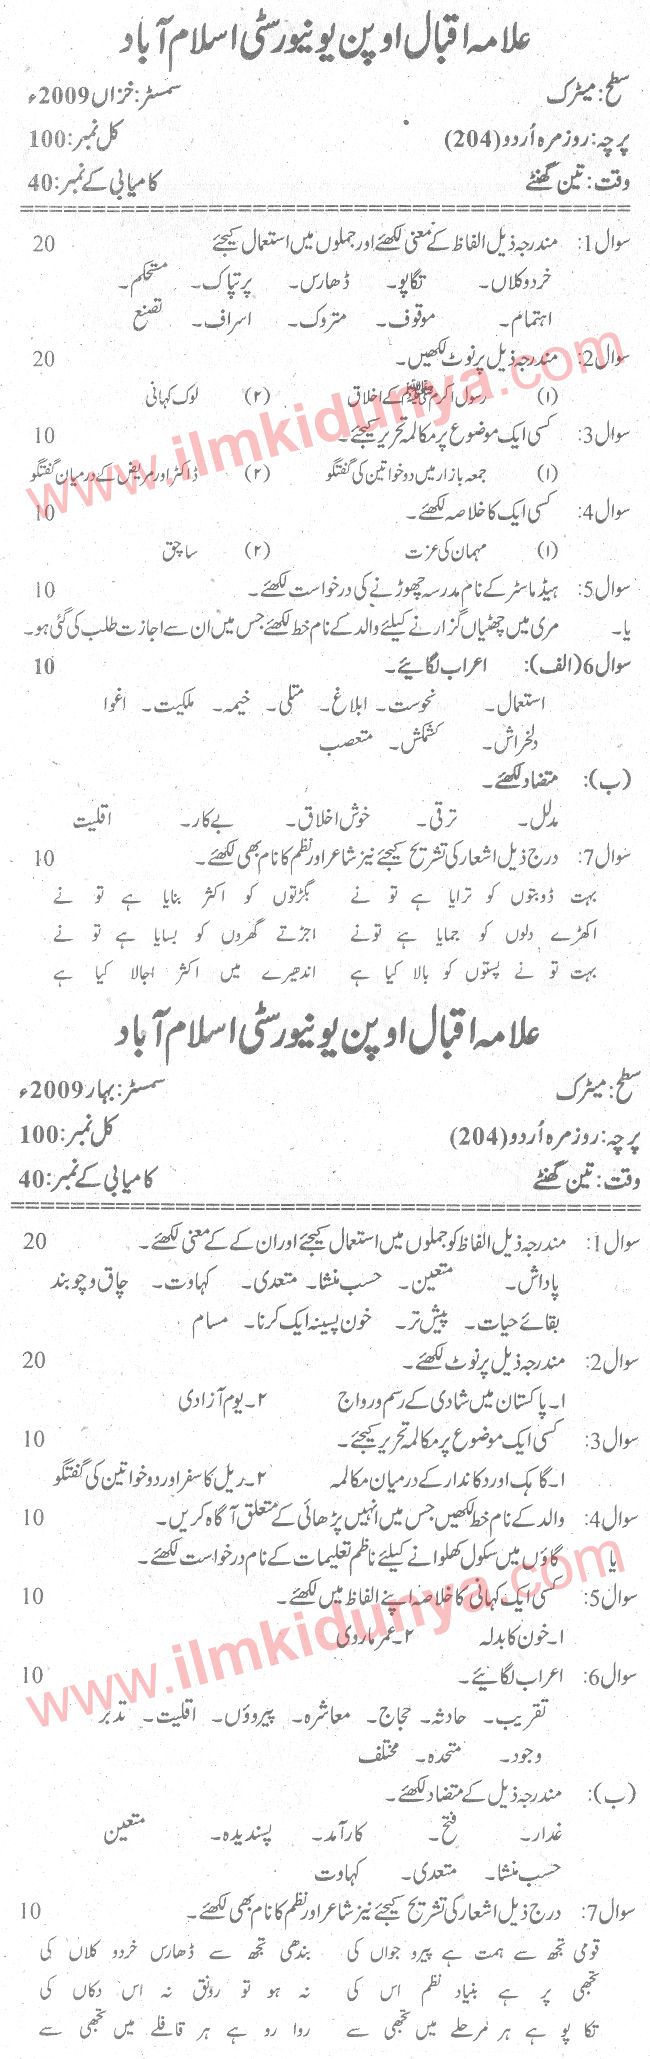 علامہ اقبال اوپن یونیورسٹی اسلام آباد
سطح: میٹرک سمسٹر: خزاں 2009ء
پرچہ: روزمرہ اُردو (204) کل نمبر: 100
وقت: تین گھنٹے کامیابی کے نمبر: 40
سوال 1: مندرجہ ذیل الفاظ کے معنی لکھئے اور جملوں میں استعمال کیجئے 20
خردوکلاں۔ تگاپو۔ ڈھارس۔ پرتپاک۔ مستحکم۔
اہتمام۔ موقوف۔ متروک۔ اسراف۔ تصنع
سوال 2: مندرجہ ذیل پر نوٹ لکھیں۔ 20
(۱) رسول اکرم ﷺ کے اخلاق (۲) لوک کہانی
سوال 3: کسی ایک موضوع پر مکالمہ تحریر کیجئے۔ 10
(۱) جمعہ بازار میں دو خواتین کی گفتگو (۲) ڈاکٹر اور مریض کے درمیان گفتگو
سوال 4: کسی ایک کا خلاصہ لکھئے۔ 10
(۱) مہمان کی عزت (۲) ساچق
سوال 5: ہیڈ ماسٹر کے نام مدرسہ چھوڑنے کی درخواست لکھئے۔ 10
یا۔ مری میں چھٹیاں گزارنے کیلئے والد کے نام خط لکھئے جس میں ان سے اجازت طلب کی گئی ہو۔
سوال 6 (الف): اعراب لگائیے۔ 10
استعمال۔ نحوست۔ ابلاغ۔ متلی۔ خیمہ۔ ملکیت۔ اغوا
دلخراش۔ کشمکش۔ متعصب
(ب): متضاد لکھئے۔
مدلل۔ ترقی۔ خوش اخلاق۔ بے کار۔ اقلیت
سوال 7: درج ذیل اشعار کی تشریح کیجئے نیز شاعر اور نظم کا نام بھی لکھئے۔ 10
بہت ڈوبتوں کو ترایا ہے تو نے بگڑتوں کو اکثر بنایا ہے تو نے
اکھڑے دلوں کو جمایا ہے تونے اجڑتے گھروں کو بسایا ہے تو نے
بہت تو نے پستوں کو بالا کیا ہے اندھیرے میں اکثر اجالا کیا ہے
علامہ اقبال اوپن یونیورسٹی اسلام آباد
سطح: میٹرک سمسٹر: بہار 2009ء
پرچہ: روزمرہ اُردو (204) کل نمبر: 100
وقت: تین گھنٹے کامیابی کے نمبر: 40
سوال 1: مندرجہ ذیل الفاظ کو جملوں میں استعمال کیجئے اور ان کے کے معنی لکھئے۔ 20
پاداش۔ متعین۔ حسب منشا۔ متعدی۔ کہاوت۔ چاق و چوبند
بقائے حیات۔ پیش تر۔ خون پسینہ ایک کرنا۔ مسام
سوال 2: مندرجہ ذیل پر نوٹ لکھئے۔ 20
۱۔ پاکستان میں شادی کے رسم و رواج ۲۔ یوم آزادی
سوال 3: کسی ایک موضوع پر مکالمہ تحریر کیجئے۔ 10
۱۔ گاہک اور دکاندار کے درمیان مکالمہ ۲۔ ریل کا سفر اور دو خواتین کی گفتگو
سوال 4: والد کے نام خط لکھیں جس میں انہیں پڑھائی کے متعلق آگاہ کریں۔ 10
یا گاؤں میں سکول کھلوانے کیلئے ناظم تعلیمات کے نام درخواست لکھئے۔
سوال 5: کسی ایک کہانی کا خلاصہ اپنے الفاظ میں لکھئے۔ 10
۱۔ خون کا بدلہ ۲۔ عمر ماروی
سوال 6: اعراب لگائیے۔ 10
تقریب۔ حادثہ۔ حجاج۔ معاشرہ۔ پیروؤں۔ اقلیت۔ تدبر
وجود۔ متحدہ۔ مختلف
(ب): مندرجہ ذیل کے متضاد لکھئے۔
غدار۔ فتح۔ کارآمد۔ پسندیدہ۔ متعین
حسب منشا۔ متعدی۔ کہاوت
سوال 7: درج ذیل اشعار کی تشریح کیجئے نیز شاعر اور نظم کا نام بھی لکھئے۔ 10
قومی تجھ سے ہمت ہے پیرو جواں کی بندھی تجھ سے ڈھارس خردو کلاں کی
تجھی پر ہے بنیاد نظم اس کی نہ ہو تو رونق نہ اس دکاں کی
تکا پو ہے ہر مرحلے میں تجھی سے روا رو ہے ہر قافلے میں تجھی سے
www.ilmkidunya.com
www.ilmkidunya.com